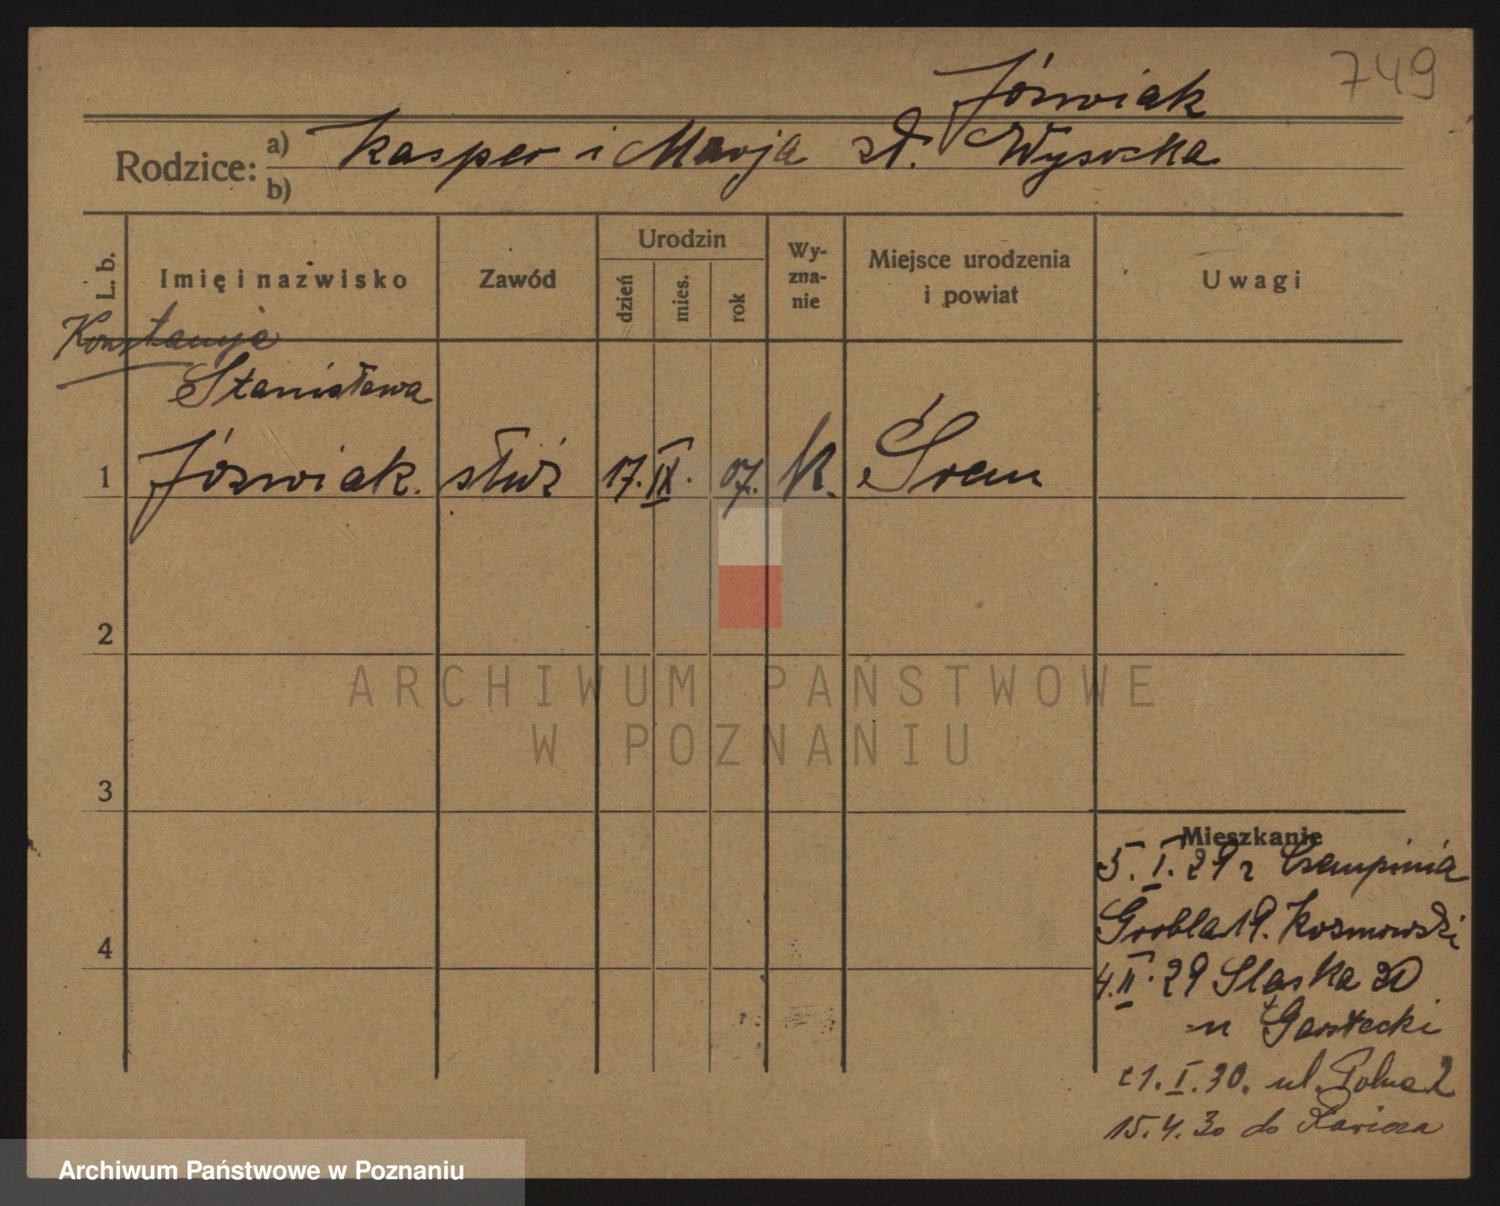 749
Jóźwiak
Rodzice: a) Kasper i Marja zd. Wysocka
b)
L. b.
Imię i nazwisko
Zawód
Urodzin
dzień
mies.
rok
Wy-
zna-
nie
Miejsce urodzenia
i powiat
Uwagi
Konstancja
Stanisława
1 Józwiak. służ 17. IX. 07. k. Śrem
2
ARCHIWUM PAŃSTWOWE
W POZNANIU
3
Mieszkanie
5. I. 29 z Czempinia
Grobla 19. Kosmowski
4
4. II. 29 Slaska
u Garstecki
21. I. 30. ul. Polna 2
15. 4. 30 do
Archiwum Państwowe w Poznaniu